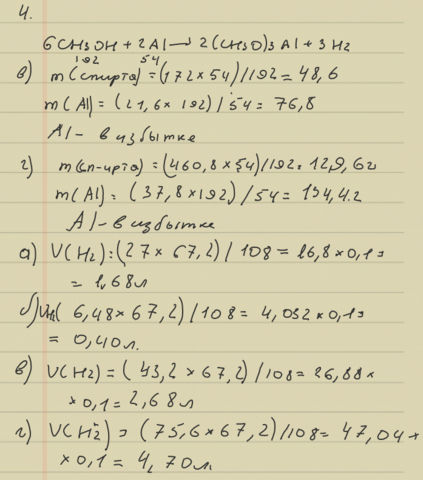 4.
6CH3OH + 2Al → 2(CH3O)3 Al + 3H2
192 54
в) m(спирта) = (172 × 54) / 192 = 48,6
m(Al) = (21,6 × 192) / 54 = 76,8
Al - в избытке
г) m(сп-ирта) = (460,8 × 54) / 192 = 129,6г
m(Al) = (37,8 × 192) / 54 = 134,4г
Al - в избытке
а) V(H2) = (27 × 67,2) / 108 = 16,8 × 0,1 =
= 1,68л
б) VH2( 6,48 × 67,2) / 108 = 4,032 × 0,1 =
= 0,40л.
в) V(H2) = (43,2 × 67,2) / 108 = 26,88 ×
× 0,1 = 2,68л
г) V(H2) = (75,6 × 67,2) / 108 = 47,04 ×
× 0,1 = 4,70л